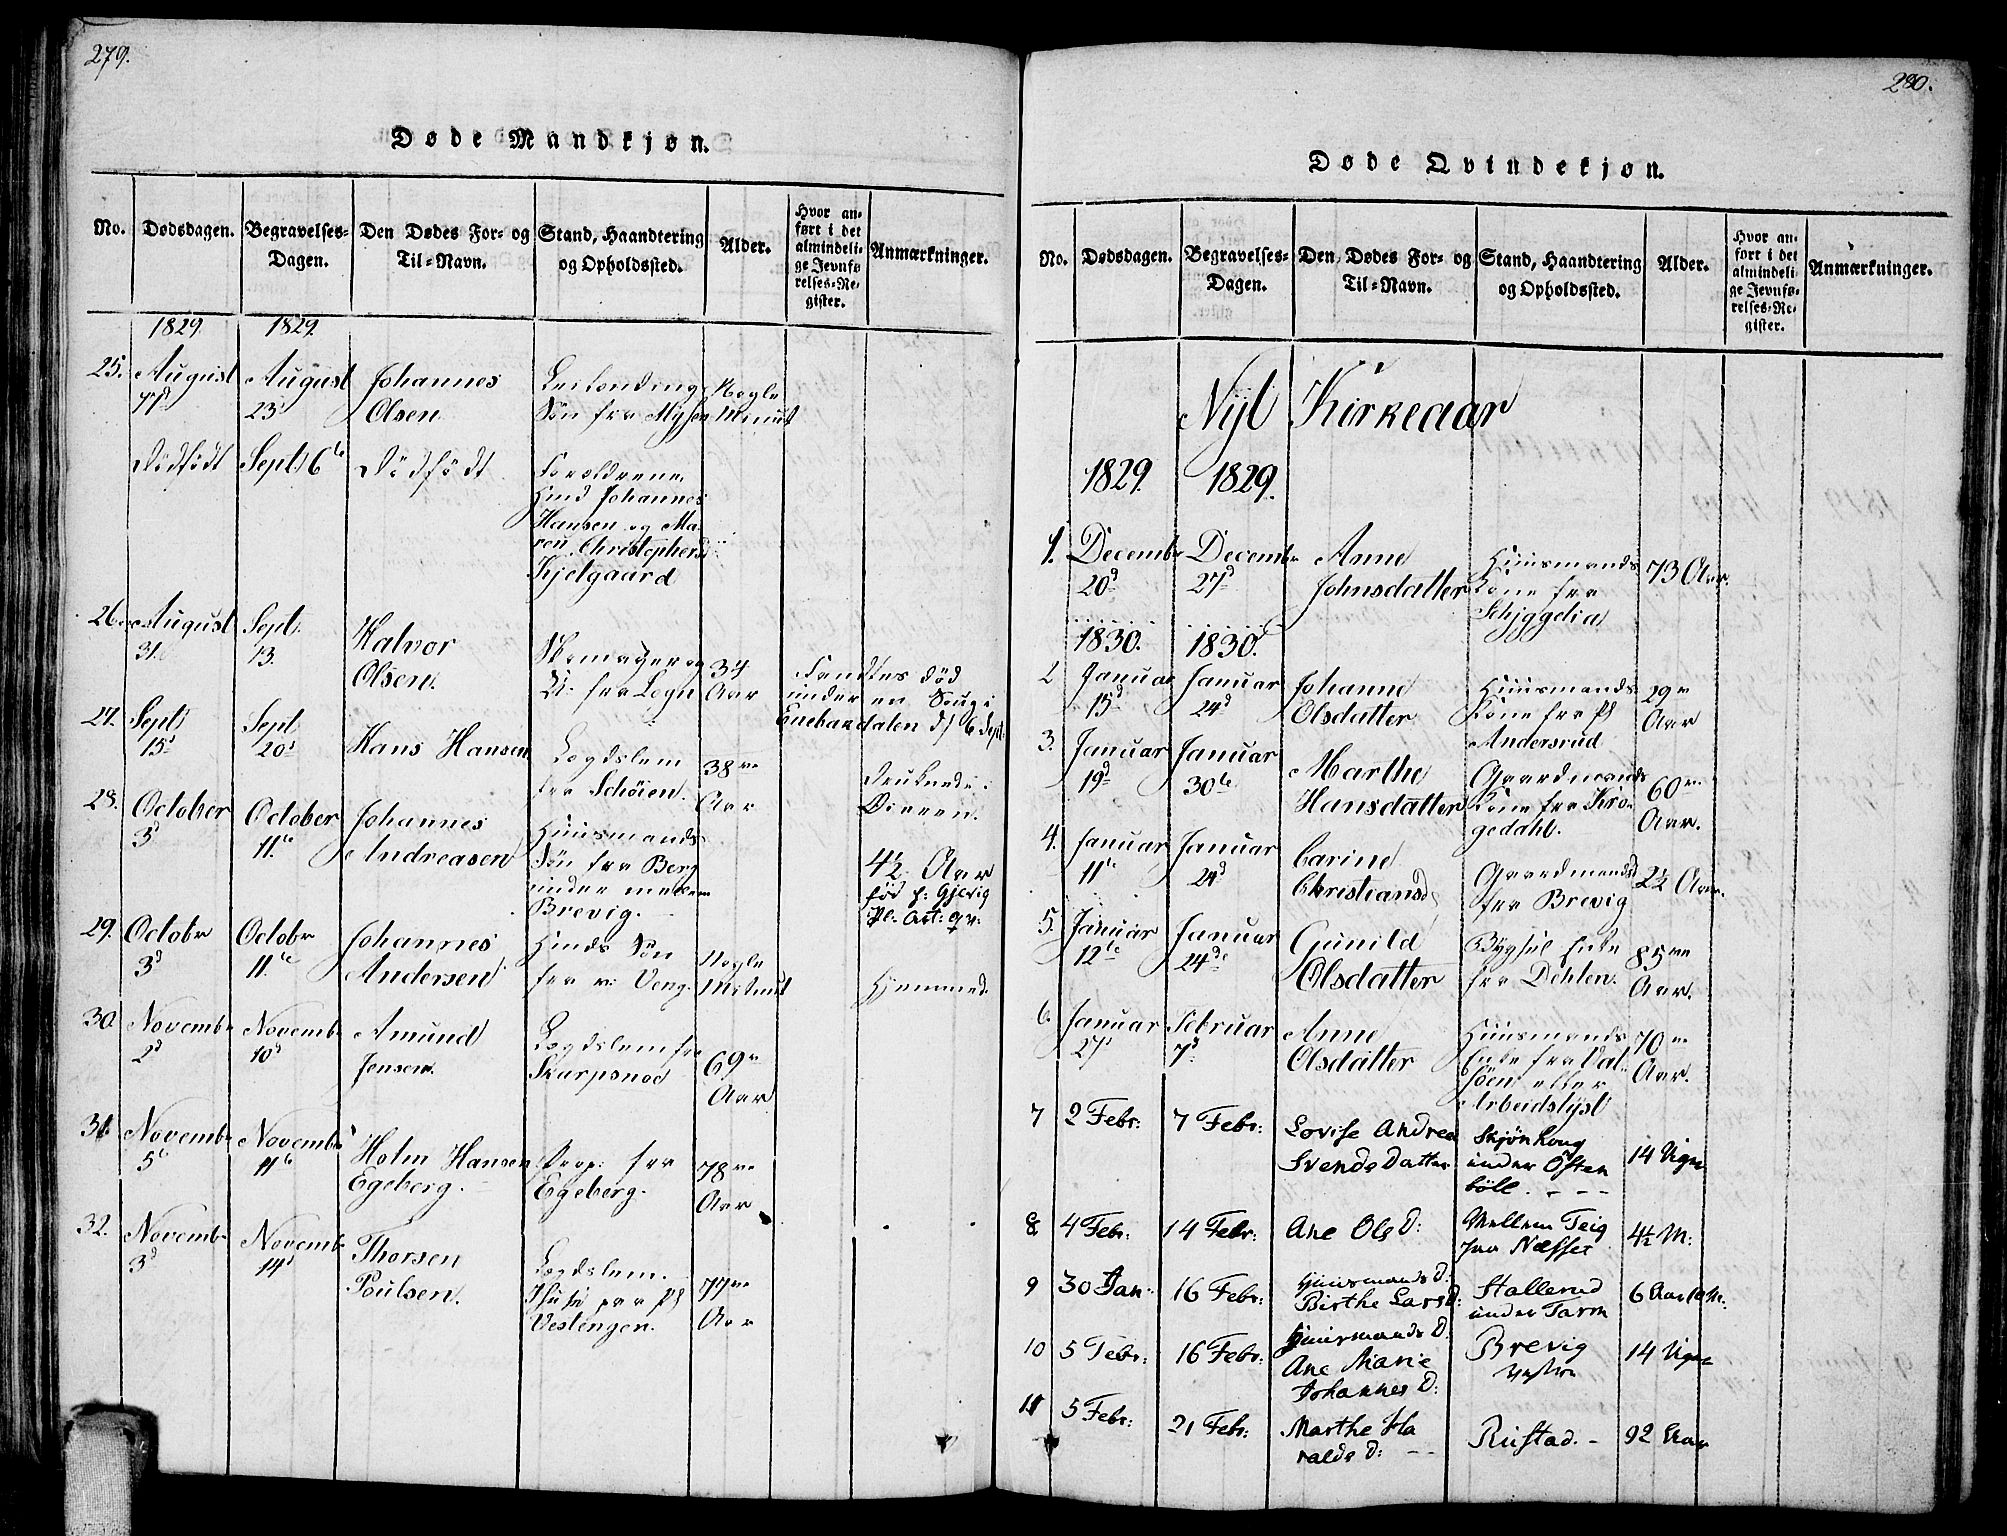 279.
Døde Mandkjøn.
No. Dødsdagen. Begravelses-Dagen. Den Dødes For- og Til-Navn. Stand, Haandtering og Opholdssted. Alder. Hvor anført i det almindelige Jevnførelses-Register. Anmærkninger.
1829. 1829.
25. August 17d August 23d Johannes Olsen Leilændings Søn fra Mysen Nogle Minut
Dödfödt Sept 6te Dödfödt Forældrene Huusmd Johannes Hansen og Maren Christophersd Kjelgaard
26. August 31. Sept. 13. Halvor Olsen. Skomager og fra Løgn 34 Aar Fandtes död under en Soug i Enebakdalen d 6 Sept.
27. Sept 15d Sept 20d Hans Hansen Lægdslem fra Schöien. 38 Aar Druknede i Öieren.
28. October 3d October 11te Johannes Andreasen Huusmands Søn fra Berg under mellem Brevig. 4½ Aar fød p: Gjevig Pl: Art: qv:
29. Octobr 3d Octobr 11te Johannes Andersen Søn fra v: Veng. Nogle Minut Hjemmed.
30. Novembr 2d Novembr 10d Amund Jensen. Lægdslem fra Skarpsnoe 69 Aar
31. Novembr 5te Novembr 11te Holm Hansen Egeberg. Prop: fra Egeberg. 78 Aar
32. Novembr 3d Novembr 14d Thorsen Poulsen. Lægdslem. paa Pl Vestengen. 77 Aar
280.
Døde Qvindekjøn.
No. Dødsdagen. Begravelses-Dagen. Den Dødes For- og Til-Navn. Stand, Haandtering og Opholdssted. Alder. Hvor anført i det almindelige Jevnførelses-Register. Anmærkninger.
Nyt Kirkeaar
1829. 1829.
1. Decembr 20d Decembr 27d Anne Johnsdatter Huusmands Kone fra Schjyggelia 73 Aar.
1830. 1830.
2 Januar 15d Januar 24d Johanne Olsdatter Huusmands Kone fra Pl Andersrud 29 Aar
3. Januar 19d Januar 30te Marthe Hansdatter Gaardmands Kone fra Krogedahl. 60 Aar.
4. Januar 11te Januar 24d Carine Christiansd Gaardmandsd fra Brevig 2½ Aar.
5. Januar 12te Januar 24de Gunild Olsdatter Bygsel Enke fra Dehlen. 85 Aar.
6. Januar 27d Februar 7d Anne Olsdatter Huusmands Enke fra Dalsöen eller Arbeidslyst 70 Aar.
7 2 Febr: 7 Febr: Lovise Andrea Svends Datter Skjönhoug under Östenböll. 14 Uger
8 4 Febr: 14 Febr: Ane Ols D: Mellem Teig paa Næsset 4½ M:
9 30 Jan: 16 Febr: Huusmands D: Birthe Lars D: Stallerud under Tarm 6 Aar 10 M:
10 5 Febr: 16 Febr: Huusmands D. Ane Marie Johannes D: Brevig Vestre 14 Uger
11 5 Febr: 21 Febr: Marthe Haralds D: Rustad. 92 Aar